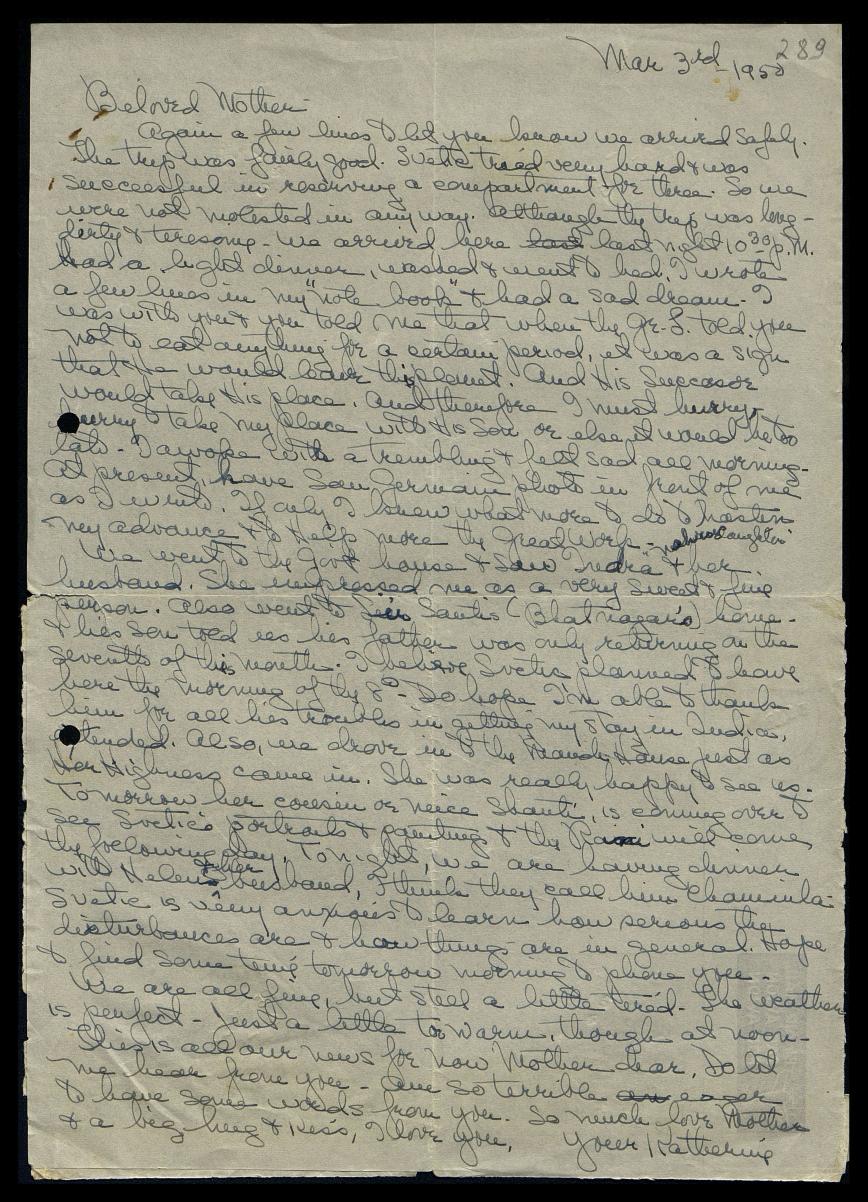 289
Mar 3rd - 1950
Beloved Mother -
Again a few lines to let you know we arrived safely.
The trip was fairly good. Svetic tried very hard & was
successful in reserving a compartment for three. So we
were not molested in any way. Although the trip was long -
dirty & tiresome - We arrived here last last night 10 30 P.M.
Had a light dinner, washed & went to bed. I wrote
a few lines in my "note book" & had a sad dream - I
was with you & you told me that when the Gr. L. told you
not to eat anything for a certain period, it was a sign
that He would leave this planet. And His Successor
would take His place. And therefore I must hurry,
hurry & take my place with His Son or else it would be too
late - I awoke with a trembling & felt sad all morning -
At present, have San Germain photo in front of me
as I write. If only I knew what more to do to hasten
my advance & to help more the Great Work -
We went to the Govt house & saw "Indra" Nehru's daughter & her
husband. She impressed me as a very sweet & fine
person. Also went to Sir Santi's (Bhatnagar's) home -
& his son told us his father was only returning on the
seventh of this month. I believe Svetic planned to leave
here the morning of the 8th - Do hope I'm able to thank
him for all his troubles in getting my stay in India,
extended. Also, we drove in to the Mandi House just as
Her Highness came in. She was really happy to see us.
Tomorrow her cousin or neice Shanti, is coming over to
see Svetic's portraits & painting & the Rani will come
the following day. Tonight, we are having dinner
with Helen's husband, I think they call him Chaminla -
Svetic is very anxious to learn how serious the
disturbances are & how things are in general. Hope
to find some time tomorrow morning to phone you -
We are all fine, but still a little tired - The weather
is perfect - just a little too warm, though at noon -
This is all our news for now Mother dear, Do let
me hear from you - am so terrible an eager
to have some words from you. So much love Mother
& a big hug & kiss, I love you, Your Katherine